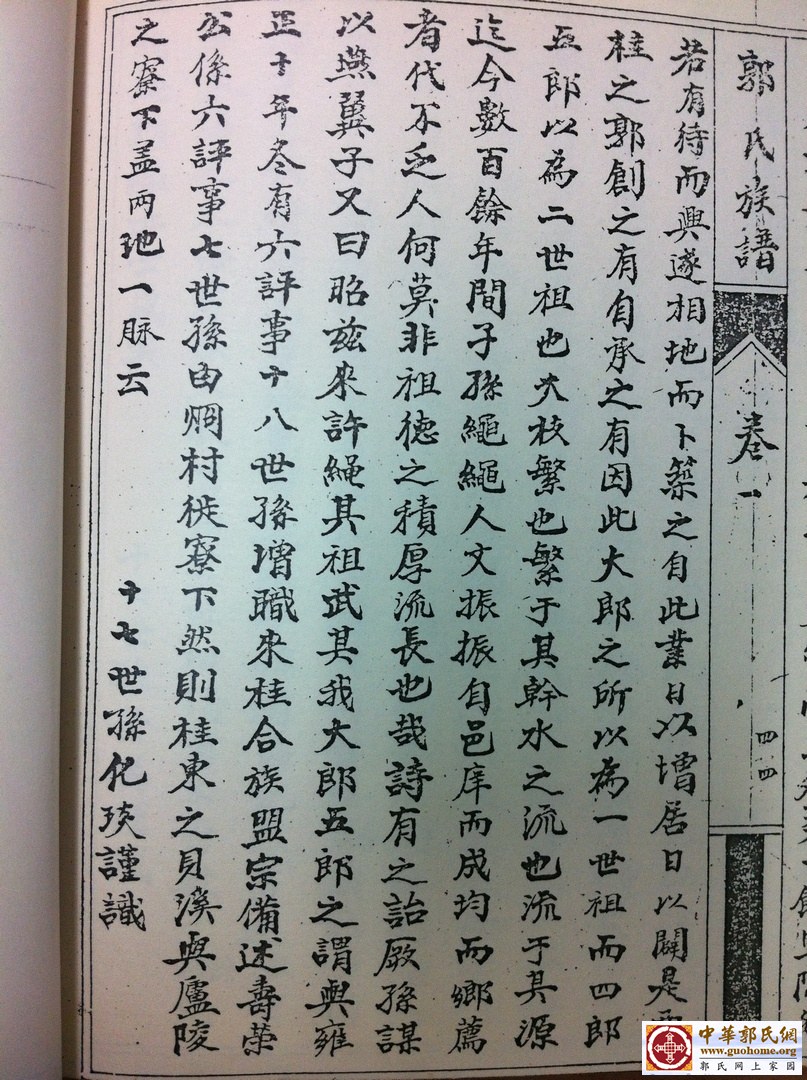 郭氏族譜
卷一
四四
若有待而興遂相地而卜築之自此業日以增居日以闢是
桂之郭創之有自承之有因此大郎之所以為一世祖而四郎
五郎以為二世祖也夫枝繁也繁于其幹水之流也流于其源
迄今數百餘年間子孫繩繩人文振振自邑庠而成均而鄉薦
者代不乏人何莫非祖德之積厚流長也哉詩有之詒厥孫謀
以燕翼子又曰昭茲來許繩其祖武其我大郎五郎之謂與雍
正十年冬有六評事十八世孫增職來桂合族盟宗備述壽榮
公係六評事七世孫由烱村徙寮下然則桂東之貝溪與廬陵
之寮下蓋兩地一脉云
十七世孫化琰謹識
中華郭氏網
www.guohome.org
郭氏網上家園